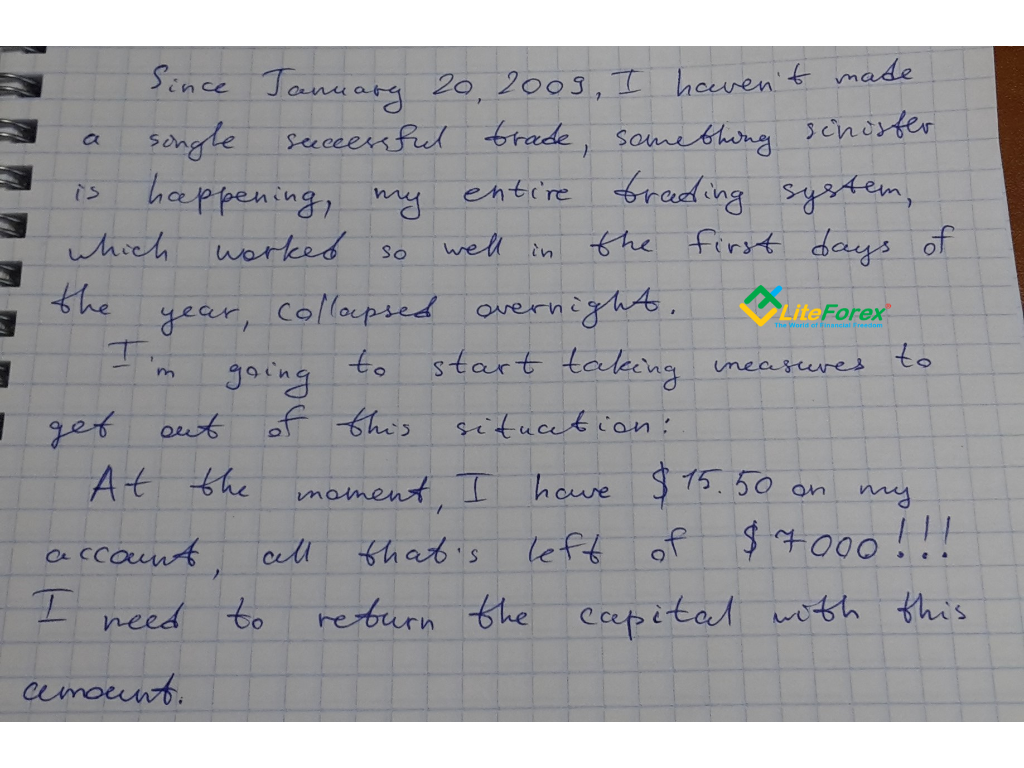 Since January 20, 2009, I haven't made
a single successful trade, something sinister
is happening, my entire trading system,
which worked so well in the first days of
the year, collapsed overnight.
LiteForex
The World of Financial Freedom
I'm going to start taking measures to
get out of this situation:
At the moment, I have $15.50 on my
account, all that's left of $7000!!!
I need to return the capital with this
amount.